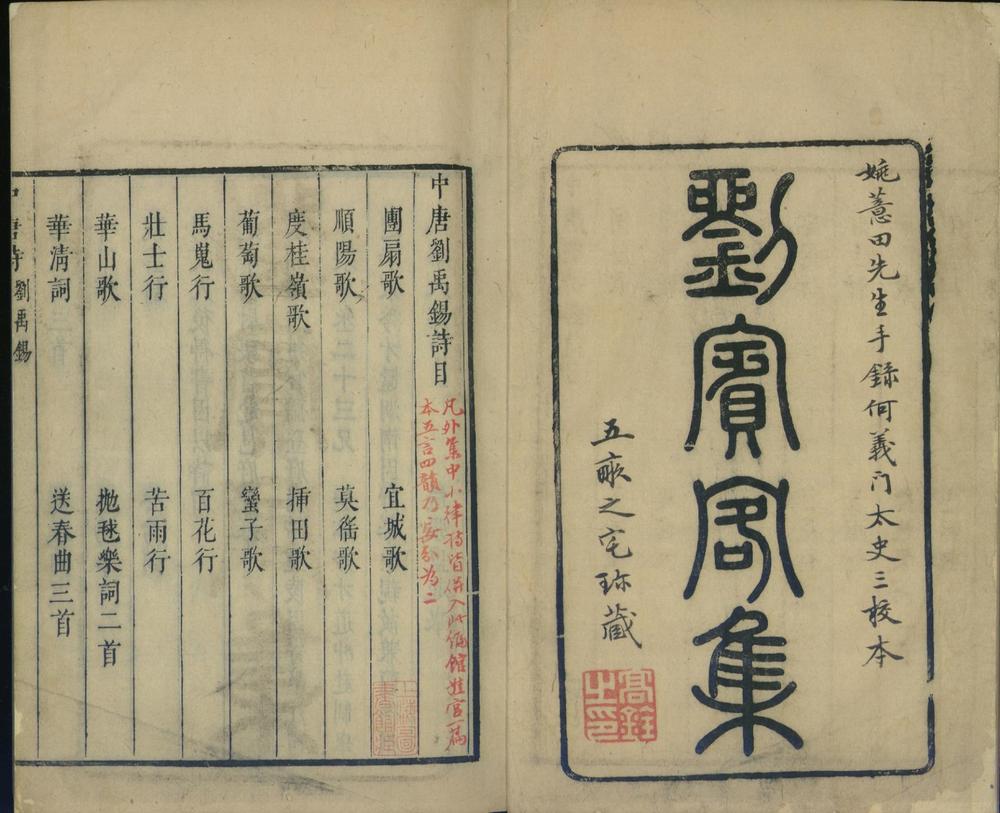 姚薏田先生手錄何義门太史三校本
劉賓客集
五畞之宅珎藏
高銓
之印
中唐劉禹錫詩目
凡外集中小律詩皆併入此編館娃宮一篇
本五言四韻乃妄分為二
團扇歌 宜城歌
順陽歌 莫徭歌
度桂嶺歌 挿田歌
葡萄歌 蠻子歌
馬嵬行 百花行
壯士行 苦雨行
華山歌 抛毬樂詞二首
華清詞 送春曲三首
中唐詩 劉禹錫